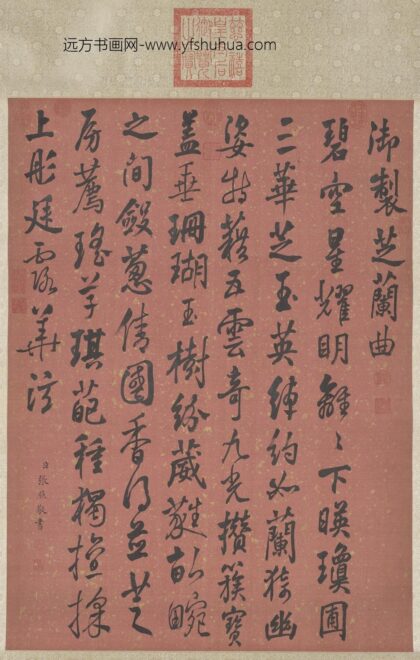 远方书画网-www.yfshuhua.com
御製芝蘭曲
碧空星耀明離〻下暎瓊圃
三華芝玉英綽約如蘭猗幽
姿特藉五雲奇九光攢簇寶
蓋垂珊瑚玉樹紛葳蕤畝畹
之間蔥倩國香得並芝
房薦瑤草琪葩種獨擅採
上彤廷露華
臣張照敬書